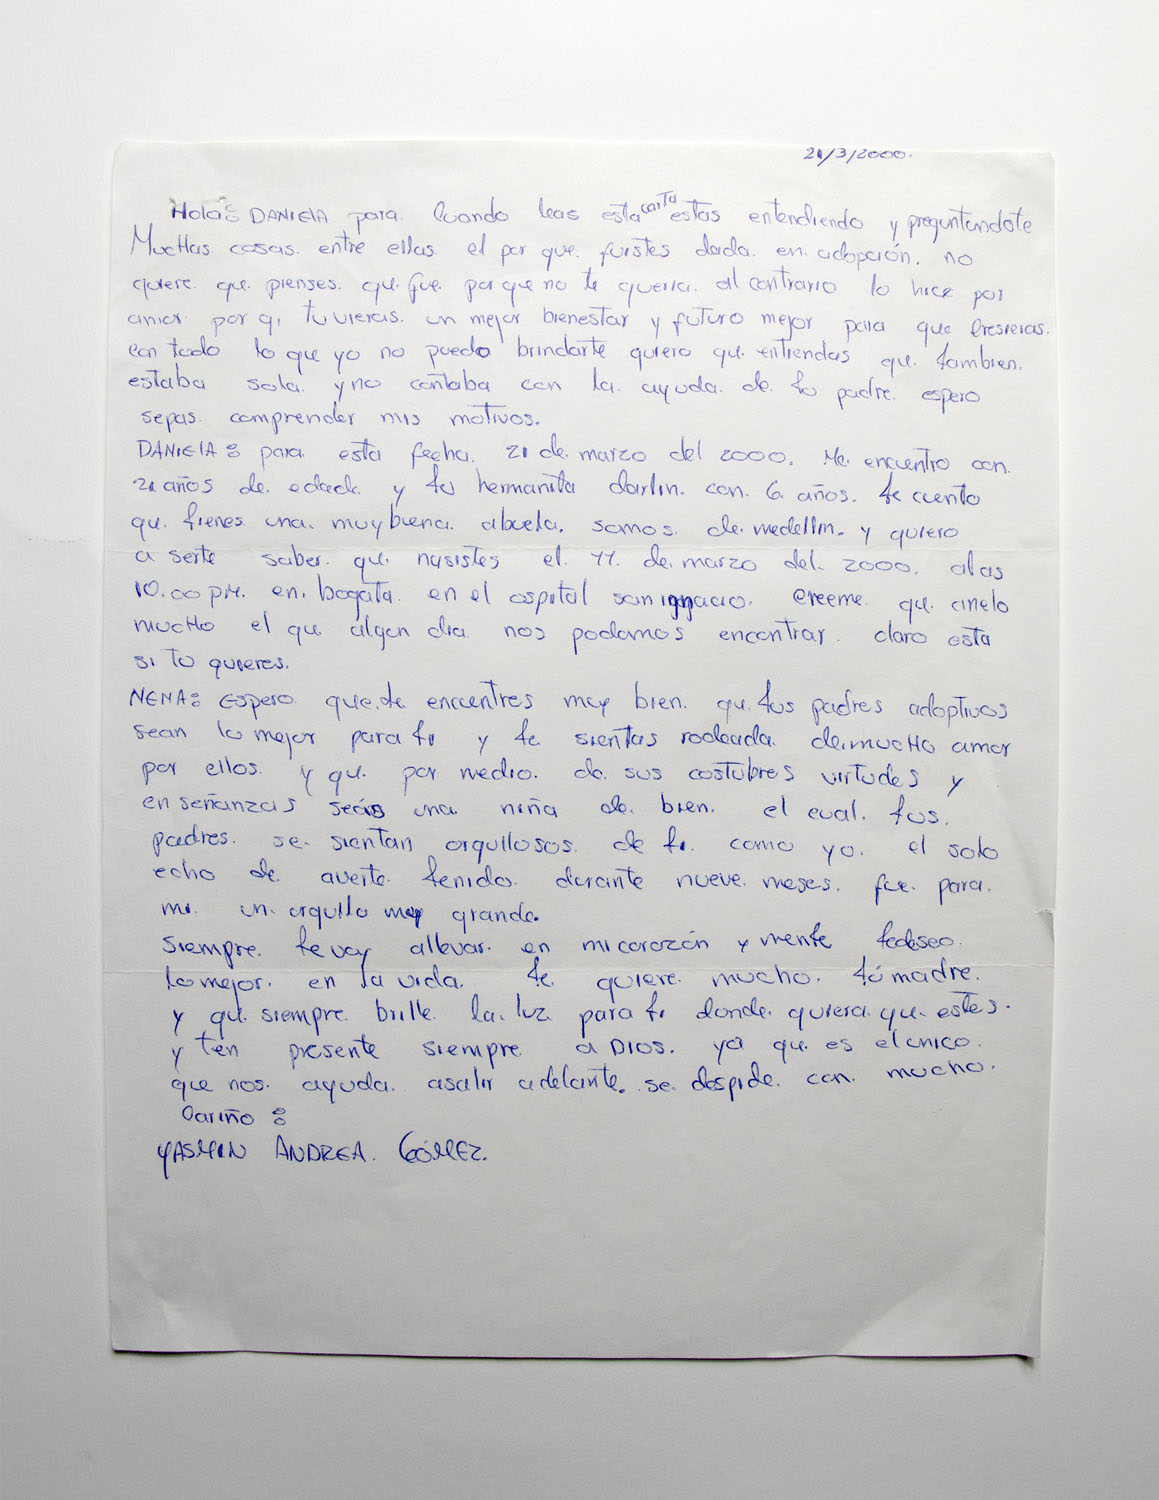 21/3/2000.
Hola: DANIEIA para. Cuando leas esta carta estas entendiendo y preguntandote
MucHas cosas. entre ellas. el por que. fuistes dada. en. adopción. no
quiere. que. pienses. que. fue. por que no te queria. al contrario lo hice por
amor por q. tuvieras. un mejor bienestar y futuro mejor para que Cresieras.
con todo lo que yo no puedo brindarte quiero que. entiendas que. tambien.
estaba sola. y no contaba con la. ayuda. de. tu padre. espero
sepas. comprender mis motivos.
DANIEIA: para. esta fecha. 21 de. marzo del 2000. Me. encuentro con.
21 años de. edade. y tu hermanita darlin. con. 6 años. te cuento
qu. tienes una. muy buena. abuela. somos. de. medellin. y quiero
a serte saber. que. nasistes el. 11. de. marzo del. 2000. alas
10.00 p.M. en. bogata. en el ospital san ignacio. Creeme. que. anelo
mucHo el que algun dia. nos podamos encontrar. claro esta
si tu quieres.
NENA: Espero. que. te. encuentres muy bien. qu. tus padres adoptivos
sean lo mejor para ti y te sientas rodeada. de. mucHo amor
por ellos. y que. por medio. de. sus costubres virtudes y
en señanzas seas una. niña de. bien. el cual. tus.
padres. se. sientan orgullosos. de ti. como yo. el solo
echo de. averte. tenido. durante nueve. meses. fue para.
mi. un. orgullo muy grande.
Siempre. te voy allevar. en mi corazón y mente tedeseo.
lo mejor. en la vida. te. quiere. mucho. tú madre.
y que. siempre. brille. la. luz para ti donde. quiera. que. estes.
y ten presente siempre a DIOS. ya que es el unico.
que nos. ayuda. asalir adelante. se. despide. con. mucho.
Cariño:
YASMIN ANDREA. GÓMEZ.